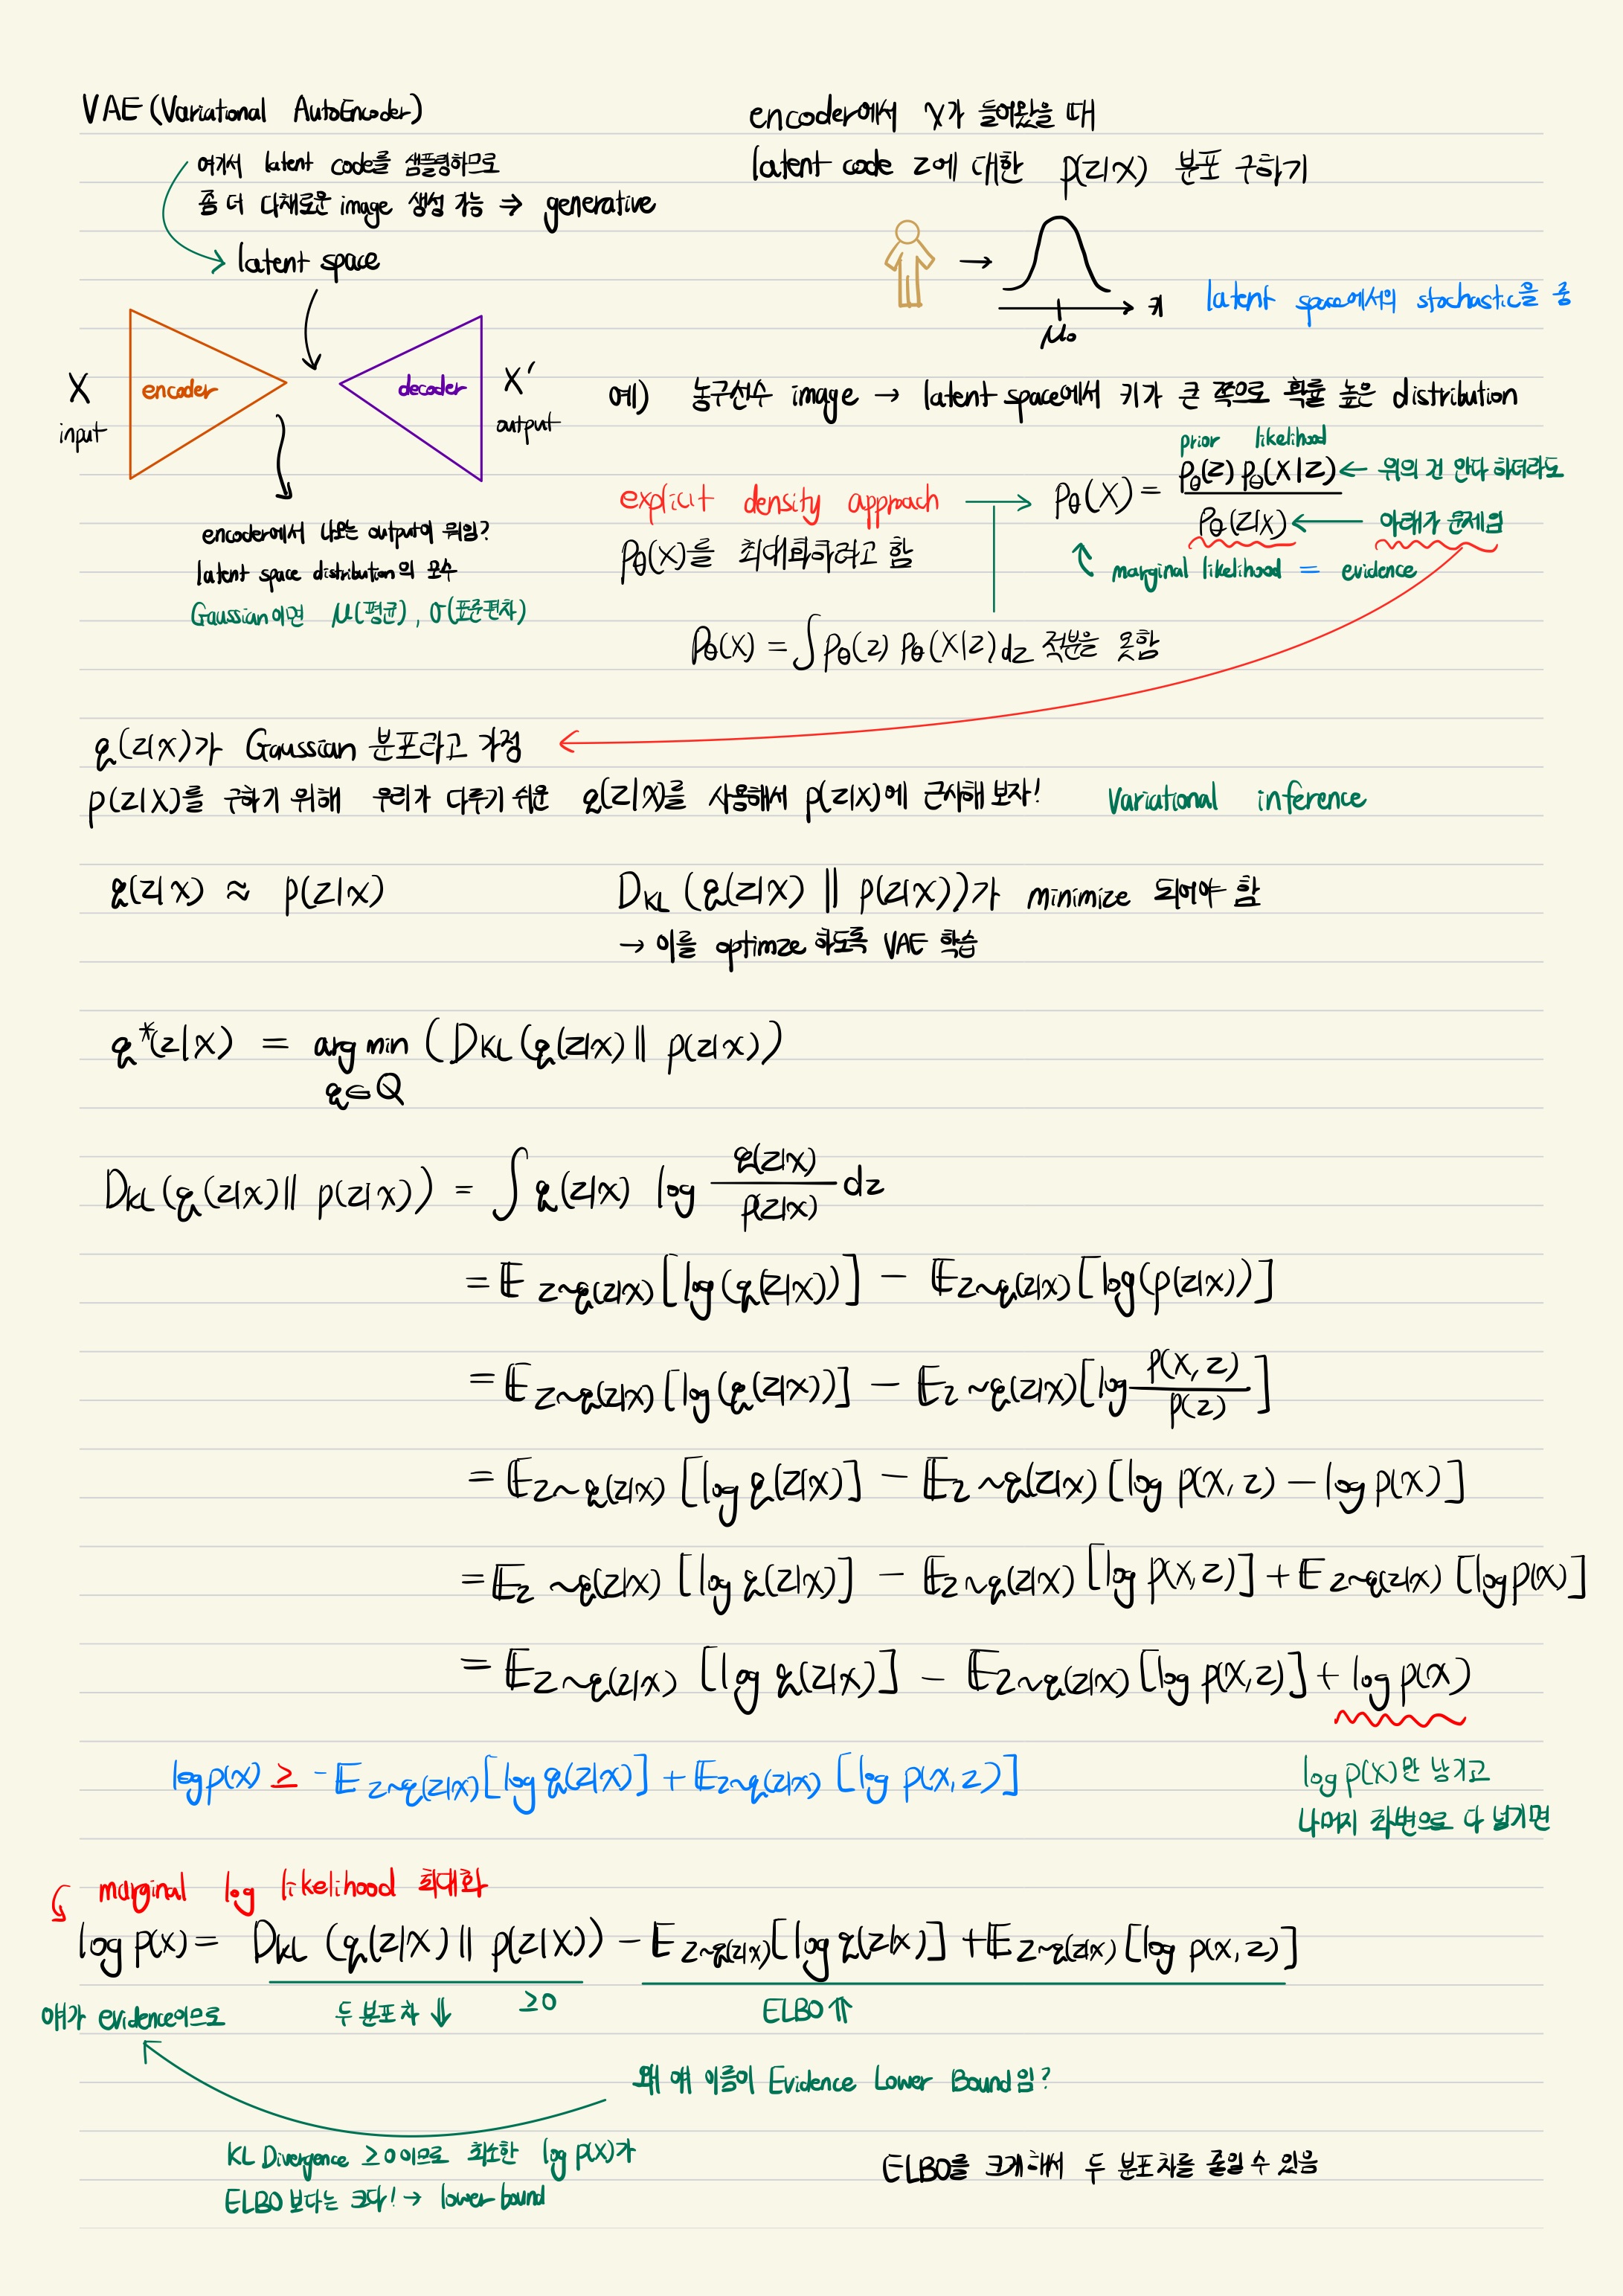 VAE (Variational AutoEncoder)
여기서 latent code를 샘플링하므로
좀 더 다채로운 image 생성 가능 ⇒ generative
latent space
X
input
encoder
decoder
X′
output
encoder에서 나오는 output이 뭐임?
latent space distribution의 모수
Gaussian이면 μ(평균), σ(표준편차)
encoder에서 X가 들어왔을 때
latent code z에 대한 p(z|x) 분포 구하기
→ 키
μ₀
latent space에서의 stochastic을 줌
예) 농구선수 image → latent space에서 키가 큰 쪽으로 확률 높은 distribution
explicit density approach
pθ(x)를 최대화하려고 함
prior likelihood
pθ(x) = pθ(z) pθ(x|z) / pθ(z|x)
← 위의 건 안다 하더라도
← 아래가 문제임
marginal likelihood = evidence
pθ(x) = ∫ pθ(z) pθ(x|z) dz 적분을 못함
q(z|x)가 Gaussian 분포라고 가정
p(z|x)를 구하기 위해 우리가 다루기 쉬운 q(z|x)를 사용해서 p(z|x)에 근사해 보자! Variational inference
q(z|x) ≈ p(z|x)
D_KL (q(z|x) || p(z|x))가 minimize 되어야 함
→ 이를 optimze 하도록 VAE 학습
q*(z|x) = arg min (D_KL (q(z|x) || p(z|x))
q∈Q
D_KL (q(z|x) || p(z|x)) = ∫ q(z|x) log q(z|x) / p(z|x) dz
= E z~q(z|x) [log(q(z|x))] − E z~q(z|x) [log(p(z|x))]
= E z~q(z|x) [log(q(z|x))] − E z~q(z|x) [log p(x, z) / p(z)]
= E z~q(z|x) [log q(z|x)] − E z~q(z|x) [log p(x, z) − log p(x)]
= E z~q(z|x) [log q(z|x)] − E z~q(z|x) [log p(x, z)] + E z~q(z|x) [log p(x)]
= E z~q(z|x) [log q(z|x)] − E z~q(z|x) [log p(x, z)] + log p(x)
log p(x) ≥ −E z~q(z|x) [log q(z|x)] + E z~q(z|x) [log p(x, z)]
log p(x)만 남기고
나머지 좌변으로 다 넘기면
marginal log likelihood 최대화
log p(x) = D_KL (q(z|x) || p(z|x)) − E z~q(z|x) [log q(z|x)] + E z~q(z|x) [log p(x, z)]
얘가 evidence이므로
두 분포 차 ⇓
≥0
ELBO ⇑
왜 얘 이름이 Evidence Lower Bound임?
KL Divergence ≥0이므로 최소한 log p(x)가
ELBO 보다는 크다! → lower bound
ELBO를 크게해서 두 분포 차를 줄일 수 있음